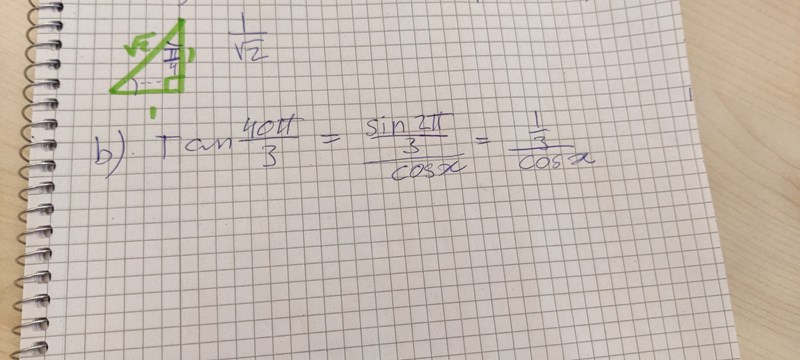 √2 π/4 1 1/√2
1
b). Tan 40π/3 = (sin 2π/3)/cosx = (1/3)/cosx